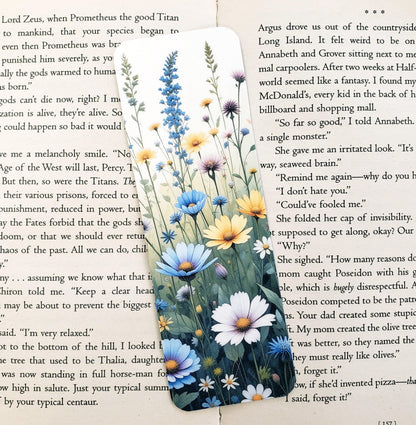 Lord Zeus, when Prometheus the good Titan
to mankind, that your species began to
even then Prometheus was bra
punished him severely, as yo
ally the gods warmed to huma
as born."
gods can't die now, right? I m
zation is alive, they're alive. So
g could happen so bad it would
ve me a melancholy smile. "No
Age of the West will last, Percy. T
But then, so were the Titans. The
their various prisons, forced to e
punishment, reduced in power, bu
ay the Fates forbid that the gods sh
doom, or that we should ever retu
chaos of the past. All we can do, chil
."
ny . . . assuming we know what that i
Chiron told me. "Keep a clear head
may be about to prevent the biggest
"
said. "I'm very relaxed."
ot to the bottom of the hill, I looked b
ne tree that used to be Thalia, daughter
was now standing in full horse-man fo
ow high in salute. Just your typical summ
f by your typical centaur.
* * *
Argus drove us out of the countryside
Long Island. It felt weird to be on
Annabeth and Grover sitting next to me
mal carpoolers. After two weeks at Half-
world seemed like a fantasy. I found my
McDonald's, every kid in the back of h
billboard and shopping mall.
"So far so good," I told Annabeth.
a single monster."
She gave me an irritated look. "It's
way, seaweed brain."
"Remind me again—why do you h
"I don't hate you."
"Could've fooled me."
She folded her cap of invisibility.
supposed to get along, okay? Our
"Why?"
She sighed. "How many reasons do
mom caught Poseidon with his g
ple, which is hugely disrespectful. A
Poseidon competed to be the patr
ns. Your dad created some stupid
t. My mom created the olive tree
was better, so they named the
hey must really like olives."
, forget it."
ow, if she'd invented pizza—tha
I said, forget it!"
[157]